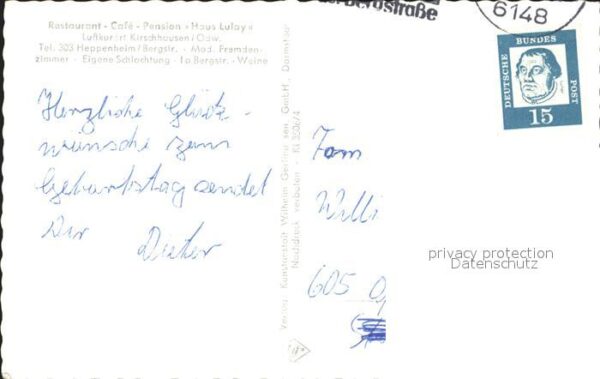 Restaurant - Café - Pension »Haus Lulay«
Luftkurort Kirschhausen / Odw.
Tel. 303 Heppenheim/Bergstr. - Mod. Fremden-
zimmer - Eigene Schlachtung - Ia Bergstr. - Weine
Bergstraße
6148
DEUTSCHE BUNDES POST
15
Herzliche Glück-
wünsche zum
Geburtstag sendet
Dir Dieter
Verlag Kunstanstalt Wilhelm Gerling sen. GmbH, Darmstadt
Nachdruck verboten - Ki 3506/4
Fam
Willi
605 O
privacy protection
Datenschutz